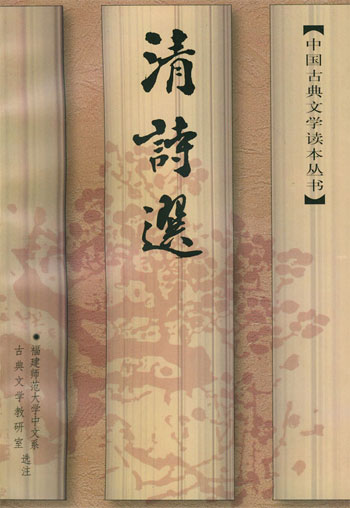 【中国古典文学读本丛书】
清詩選
福建师范大学中文系
古典文学教研室 选注